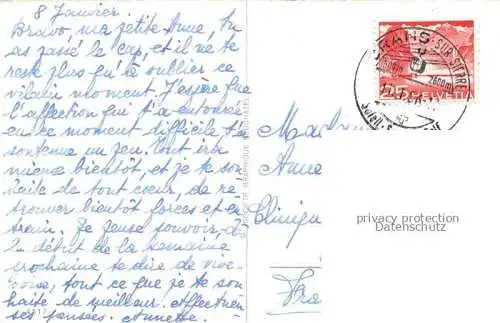 8 Janvier.
Bravo, ma petite Anne, tu
as passé le cap, et il ne te
reste plus qu'à oublier ce
vilain moment. J'espère que
l'affection qui t'a entourée
en ce moment difficile t'a
soutenue un peu. Tout ira
mieux bientôt, et je te sou-
haite de tout cœur, de re
trouver bientôt forces et en
train. Je pense pouvoir, de
début de la semaine
prochaine te dire de vive-
voix, tout ce que je te sou
haite de meilleur. Affectueu-
ses pensées. Annette.
CRANS SUR SIERRE
HELVETIA
Anne
Cliniqu
privacy protection
Datenschutz